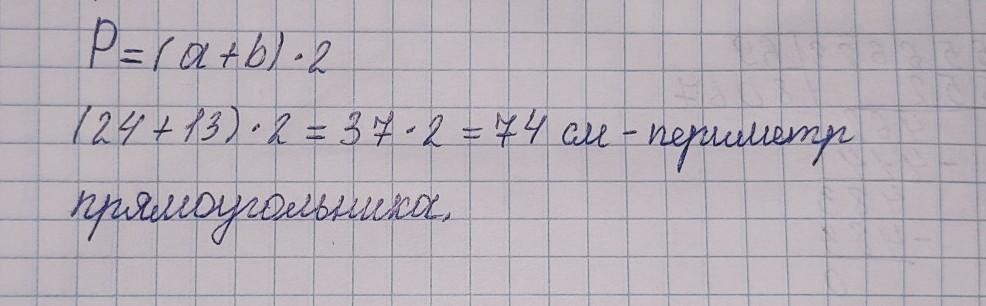 P=(a+b)·2
(24+13)·2=37·2=74 см - периметр
прямоугольника.